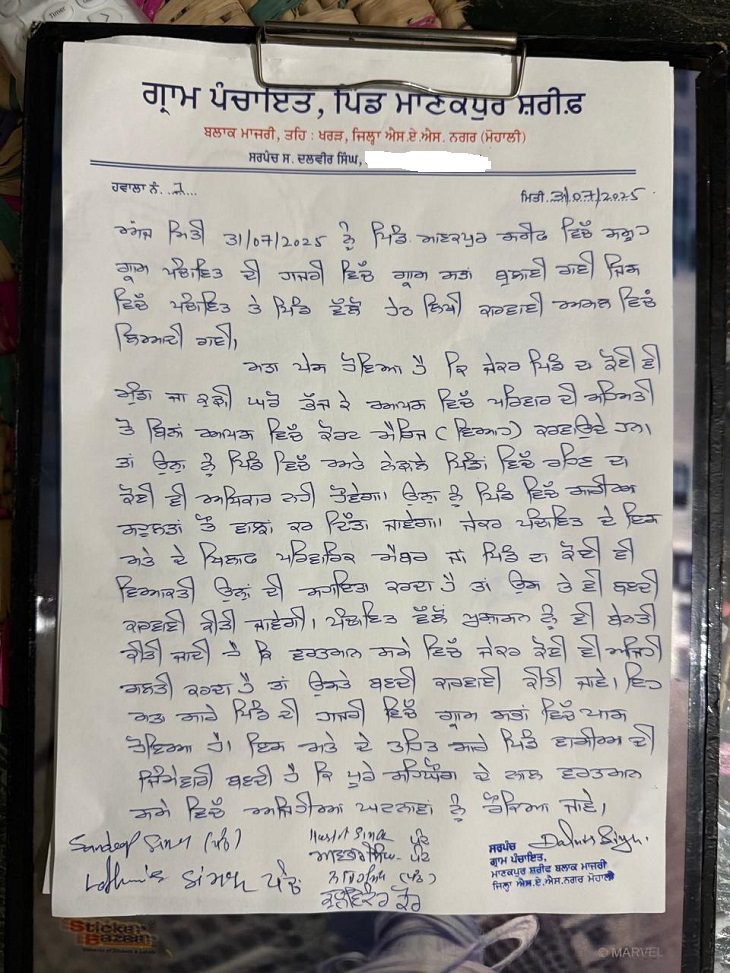 ਗ੍ਰਾਮ ਪੰਚਾਇਤ, ਪਿੰਡ ਮਾਣਕਪੁਰ ਸ਼ਰੀਫ਼
ਬਲਾਕ ਮਾਜਰੀ, ਤਹਿ : ਖਰੜ, ਜਿਲ੍ਹਾ ਐਸ.ਏ.ਐਸ. ਨਗਰ (ਮੋਹਾਲੀ)
ਸਰਪੰਚ ਸ. ਦਲਵੀਰ ਸਿੰਘ,
ਹਵਾਲਾ ਨੰ. .1...
ਮਿਤੀ 31/07/2025
ਅੱਜ ਮਿਤੀ 31/07/2025 ਨੂੰ ਪਿੰਡ ਮਾਣਕਪੁਰ ਸਰੀਫ ਵਿੱਚ ਸਮੂਹ
ਗ੍ਰਾਮ ਪੰਚਾਇਤ ਦੀ ਹਾਜਰੀ ਵਿੱਚ ਗ੍ਰਾਮ ਸਭਾ ਬੁਲਾਈ ਗਈ ਜਿਸ
ਵਿੱਚ ਪੰਚਾਇਤ ਤੇ ਪਿੰਡ ਵੱਲੋਂ ਹੇਠ ਲਿਖੀ ਕਾਰਵਾਈ ਅਮਲ ਵਿੱਚ
ਲਿਆਂਦੀ ਗਈ।
ਮਤਾ ਪੇਸ਼ ਹੋਇਆ ਹੈ ਕਿ ਜੇਕਰ ਪਿੰਡ ਦਾ ਕੋਈ ਵੀ
ਮੁੰਡਾ ਜਾ ਕੁੜੀ ਘਰੋਂ ਭੱਜ ਕੇ ਆਪਸ ਵਿੱਚ ਪਰਿਵਾਰ ਦੀ ਸਹਿਮਤੀ
ਤੋ ਬਿਨਾਂ ਆਪਸ ਵਿੱਚ ਕੋਰਟ ਮੈਰਿਜ (ਵਿਆਹ) ਕਰਵਾਉਂਦੇ ਹਨ।
ਤਾਂ ਉਨਾ ਨੂੰ ਪਿੰਡ ਵਿੱਚ ਅਤੇ ਨੇੜਲੇ ਪਿੰਡਾਂ ਵਿੱਚ ਰਹਿਣ ਦਾ
ਕੋਈ ਵੀ ਅਧਿਕਾਰ ਨਹੀ ਹੋਵੇਗਾ। ਉਨਾ ਨੂੰ ਪਿੰਡ ਵਿੱਚ ਸਮਾਜਿਕ
ਸਹੂਲਤਾਂ ਤੋਂ ਵਾਂਝਾ ਕਰ ਦਿੱਤਾ ਜਾਵੇਗਾ। ਜੇਕਰ ਪੰਚਾਇਤ ਦੇ ਇਸ
ਮਤੇ ਦੇ ਖਿਲਾਫ ਪਰਿਵਾਰਿਕ ਮੈਂਬਰ ਜਾਂ ਪਿੰਡ ਦਾ ਕੋਈ ਵੀ
ਵਿਅਕਤੀ ਉਨਾਂ ਦੀ ਸਹਾਇਤਾ ਕਰਦਾ ਹੈ ਤਾਂ ਉਸ ਤੇ ਵੀ ਬਣਦੀ
ਕਾਰਵਾਈ ਕੀਤੀ ਜਾਵੇਗੀ। ਪੰਚਾਇਤ ਵੱਲੋਂ ਪ੍ਰਸ਼ਾਸਨ ਨੂੰ ਵੀ ਬੇਨਤੀ
ਕੀਤੀ ਜਾਂਦੀ ਹੈ ਕਿ ਵਰਤਮਾਨ ਸਮੇ ਵਿੱਚ ਜੇਕਰ ਕੋਈ ਵੀ ਅਜਿਹੀ
ਗਲਤੀ ਕਰਦਾ ਹੈ ਤਾਂ ਉਸਤੇ ਬਣਦੀ ਕਾਰਵਾਈ ਕੀਤੀ ਜਾਵੇ। ਇਹ
ਮਤਾ ਸਾਰੇ ਪਿੰਡ ਦੀ ਹਾਜਰੀ ਵਿੱਚ ਗ੍ਰਾਮ ਸਭਾ ਵਿੱਚ ਪਾਸ
ਹੋਇਆ ਹੈ। ਇਸ ਮਤੇ ਦੇ ਤਹਿਤ ਸਾਰੇ ਪਿੰਡ ਵਾਸੀਆਂ ਦੀ
ਜਿੰਮੇਵਾਰੀ ਬਣਦੀ ਹੈ ਕਿ ਪੂਰੇ ਸਹਿਯੋਗ ਦੇ ਨਾਲ ਵਰਤਮਾਨ
ਸਮੇ ਵਿੱਚ ਅਜਿਹੀਆ ਘਟਨਾਵਾਂ ਨੂੰ ਰੋਕਿਆ ਜਾਵੇ।
Sandeep Singh (ਪੰਚ)
Singh ਪੰਚ
Singh ਪੰਚ
ਪੰਚ
(ਪੰਚ)
ਕੁਲਵਿੰਦਰ ਕੌਰ
Dalvir Singh.
ਸਰਪੰਚ
ਗ੍ਰਾਮ ਪੰਚਾਇਤ,
ਮਾਣਕਪੁਰ ਸ਼ਰੀਫ ਬਲਾਕ ਮਾਜਰੀ
ਜਿਲ੍ਹਾ ਐਸ.ਏ.ਐਸ.ਨਗਰ ਮੋਹਾਲੀ
Sticker
Bazaar
© MARVEL
Timer